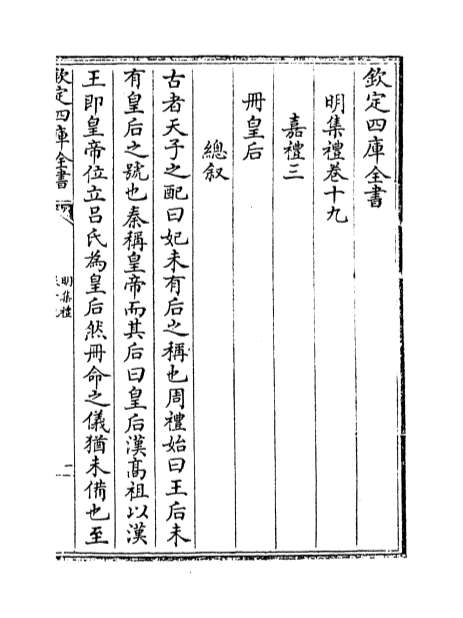 欽定四庫全書
明集禮卷十九
嘉禮三
冊皇后
總叙
古者天子之配曰妃未有后之稱也周禮始曰王后未
有皇后之號也秦稱皇帝而其后曰皇后漢高祖以漢
王即皇帝位立呂氏為皇后然冊命之儀猶未備也至
欽定四庫全書
明集禮